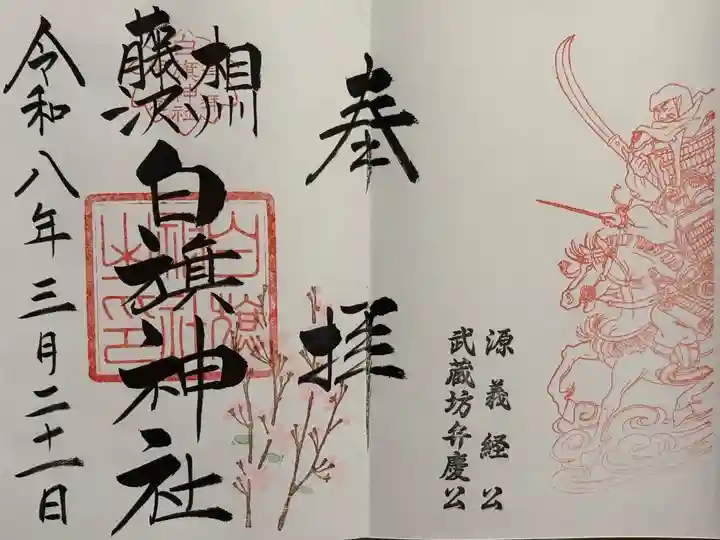 源義経公
武蔵坊弁慶公
奉拝
相州
藤沢
白旗神社
令和八年三月二十一日